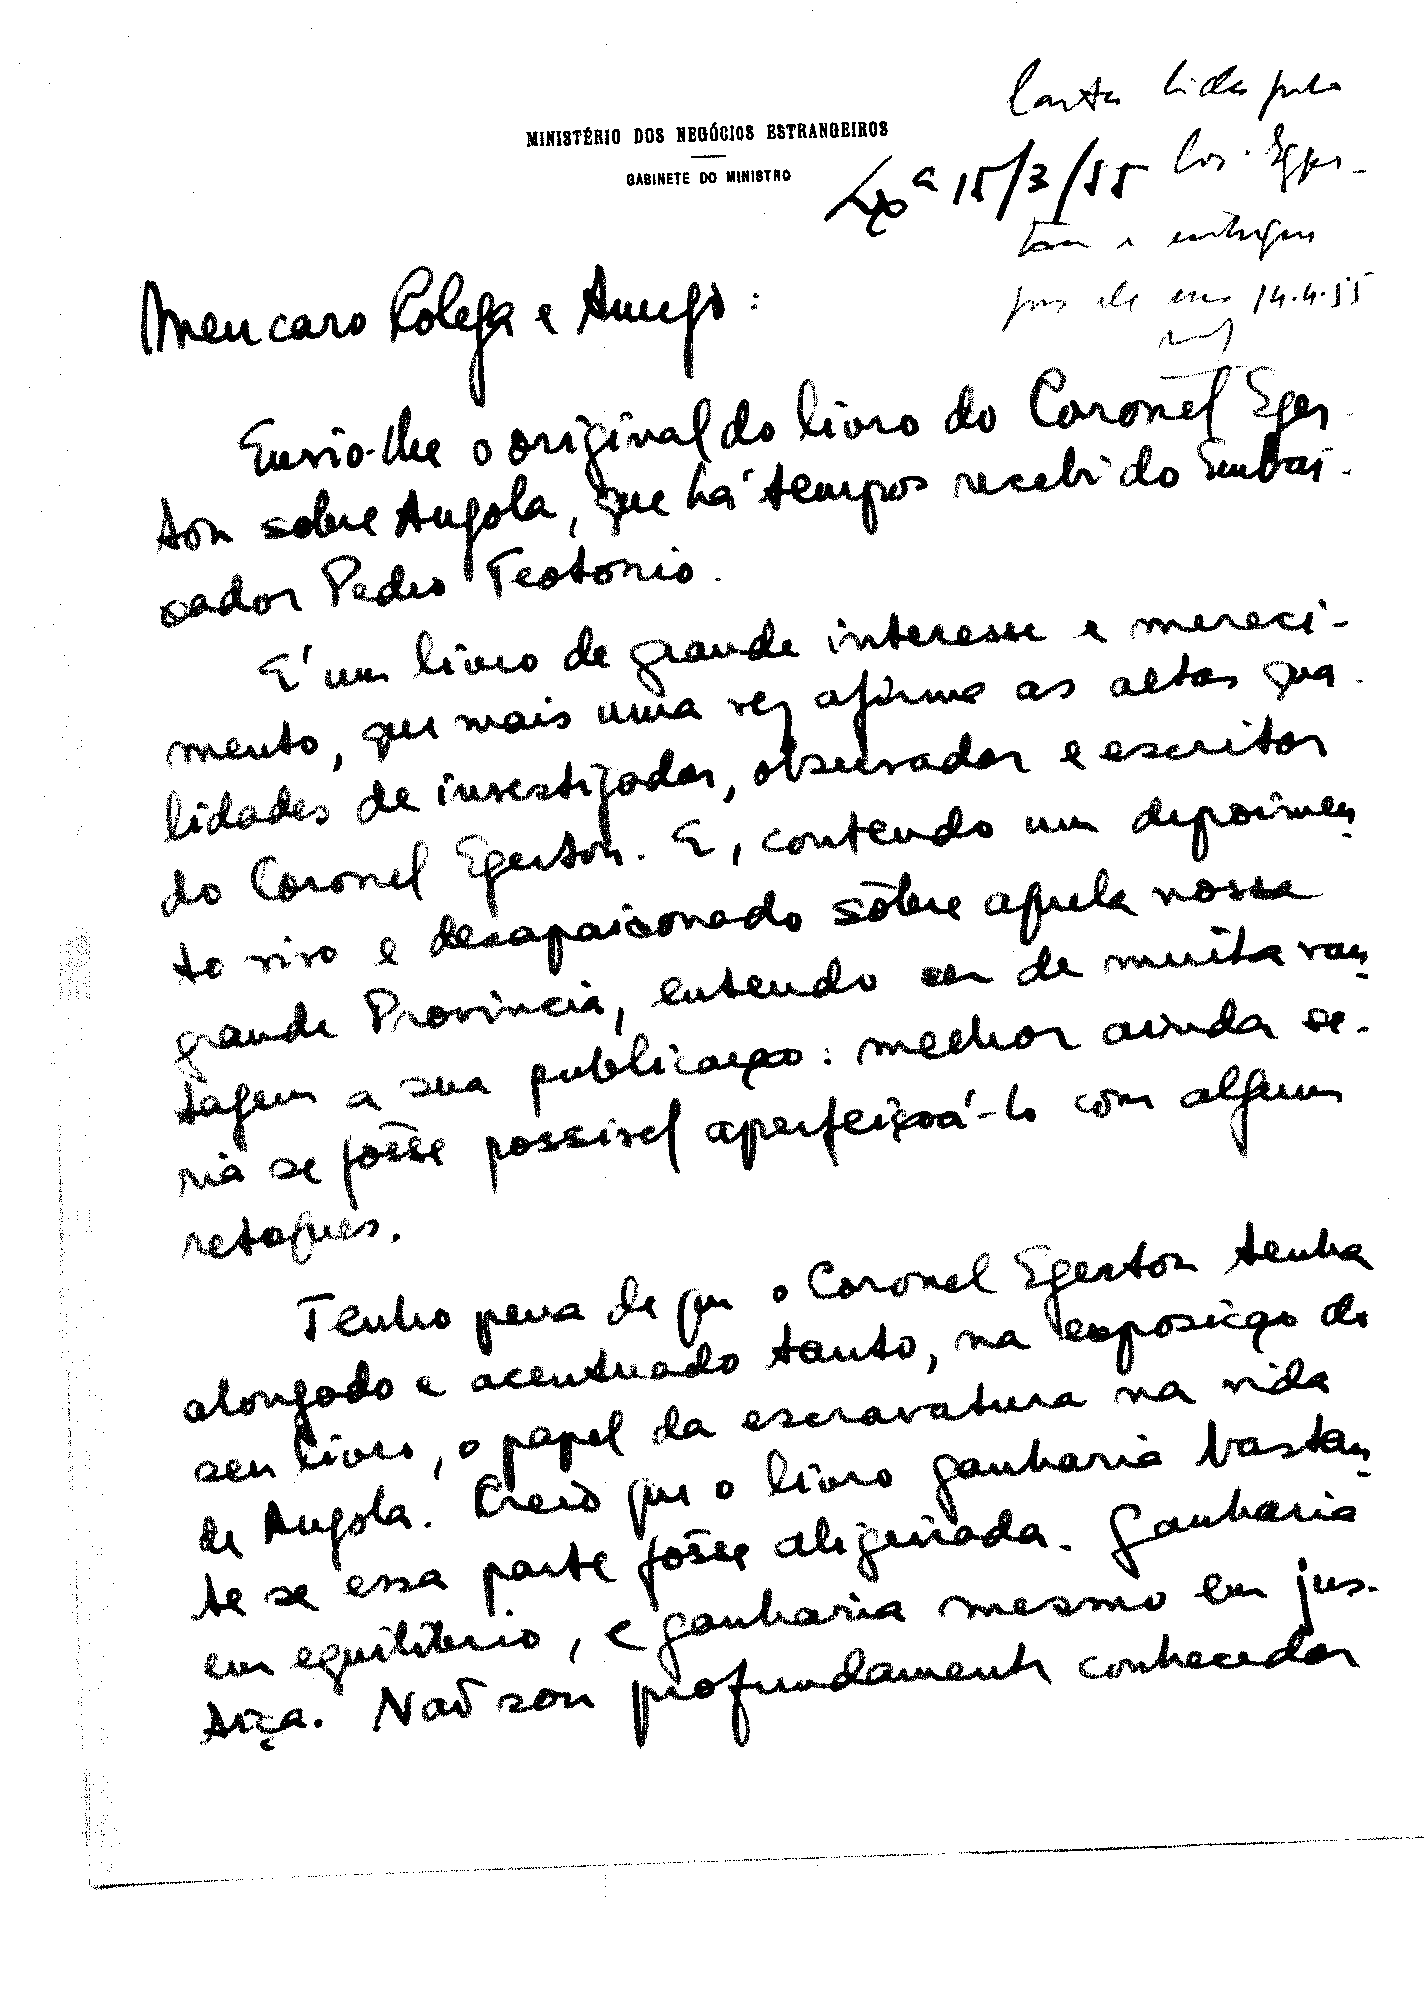 MINISTÉRIO DOS NEGÓCIOS ESTRANGEIROS
GABINETE DO MINISTRO
Carta lida pelo
Cor. Eger-
ton e entregue
por ele em 14.4.55
Lxª 15/3/55
Meu caro Colega e Amigo:
Envio-lhe o original do livro do Coronel Eger-
ton sobre Angola, que há tempos recebi do Embai-
xador Pedro Teotonio.
E' um livro de grande interesse e mereci-
mento, que mais uma vez afirma as altas qua-
lidades de investigador, observador e escritor
do Coronel Egerton. E, contendo um depoimen-
to vivo e desapaixonado sôbre aquela nossa
grande Provincia, entendo ser de muita van-
tagem a sua publicação: melhor ainda se-
ria se fôsse possivel aperfeiçoá-lo com alguns
retoques.
Tenho pena de que o Coronel Egerton tenha
alongado e acentuado tanto, na exposição do
seu livro, o papel da escravatura na vida
de Angola. Creio que o livro ganharia bastan-
te se essa parte fôsse aligeirada. Ganharia
em equilibrio, e ganharia mesmo em jus-
tiça. Não sou profundamente conhecedor